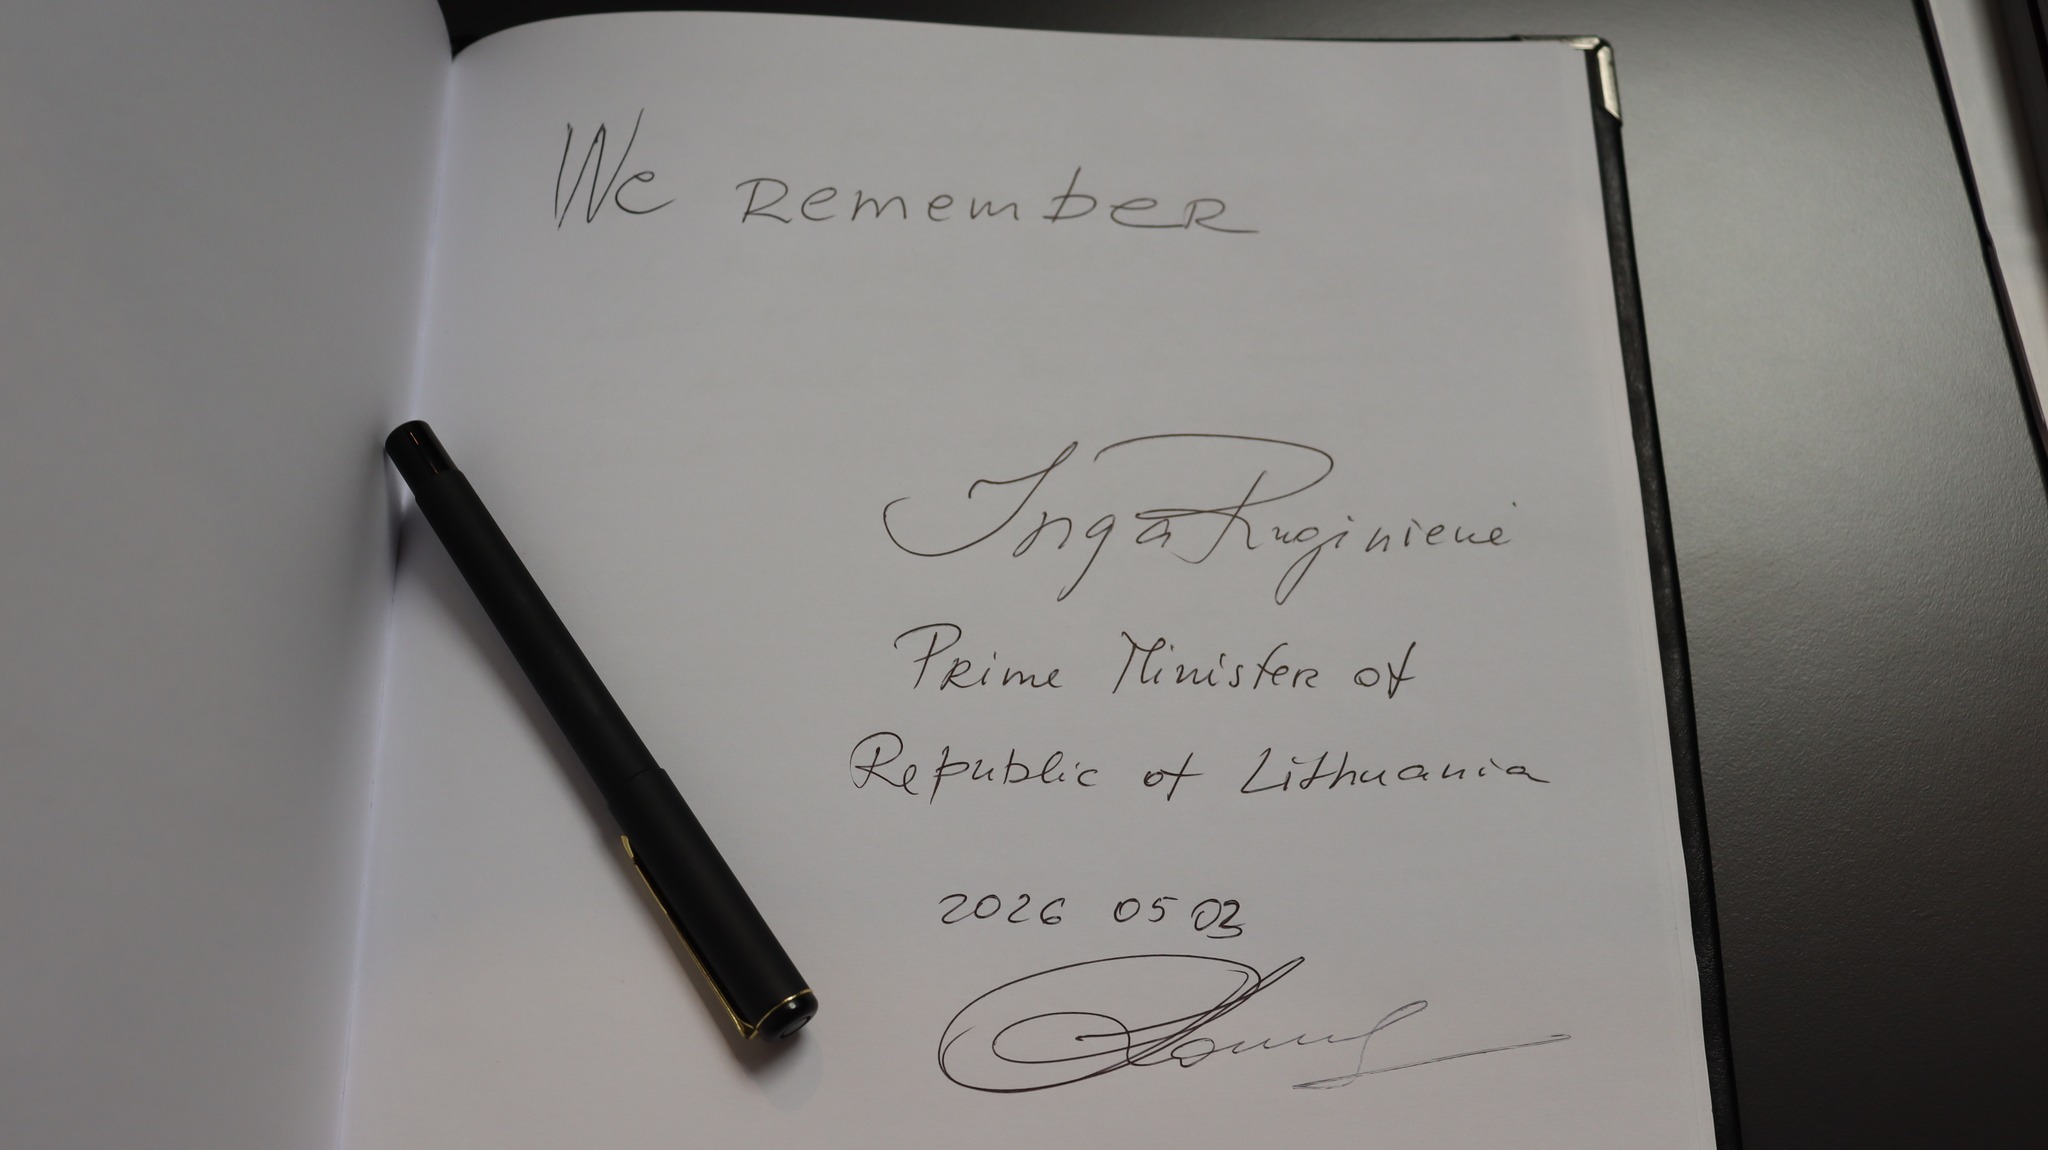 We remember
Inga Ruginienė
Prime Minister of
Republic of Lithuania
2026 05 03